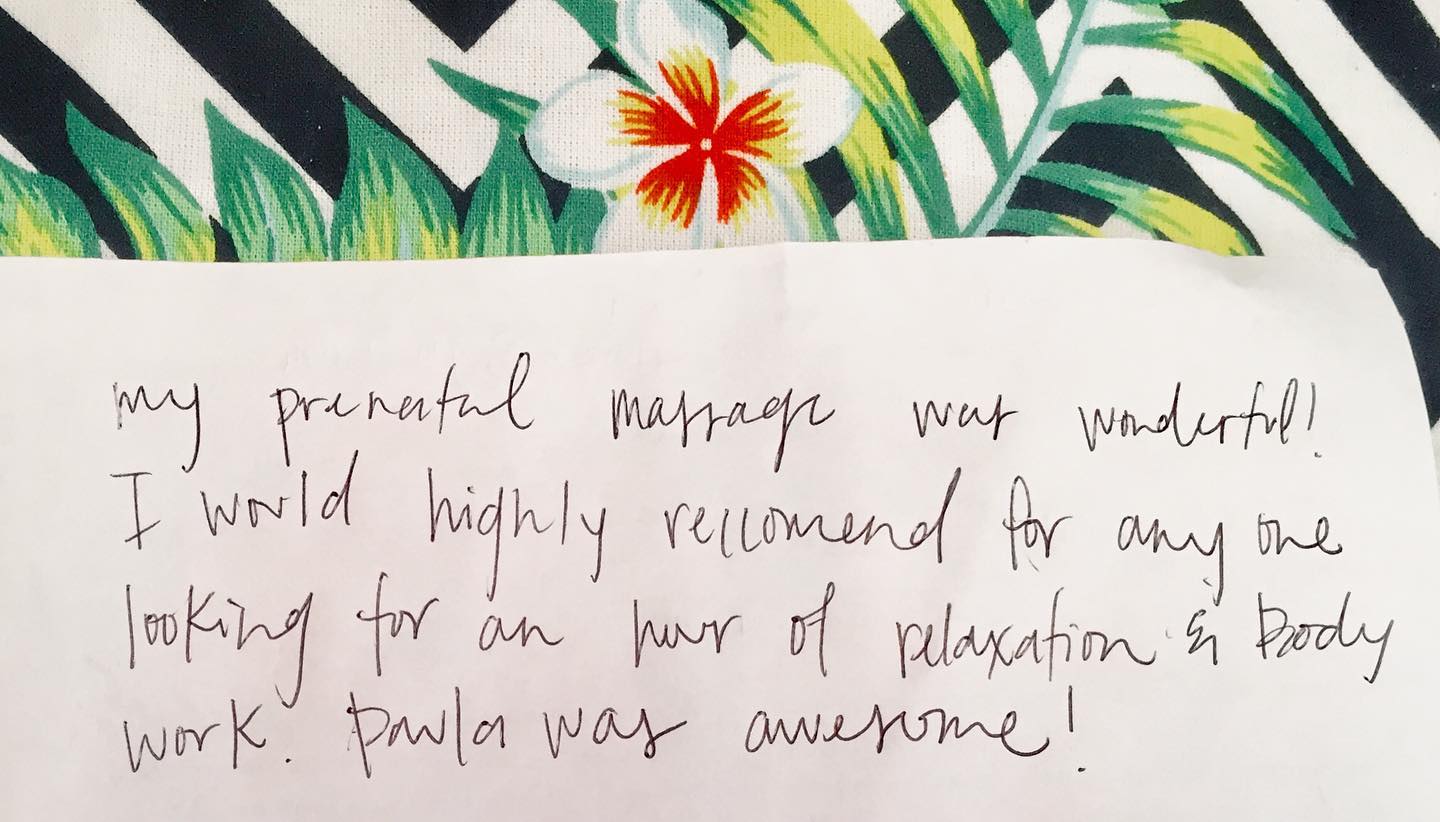 my prenatal massage was wonderful!
I would highly reccomend for any one
looking for an hour of relaxation & body
work. Paula was awesome!